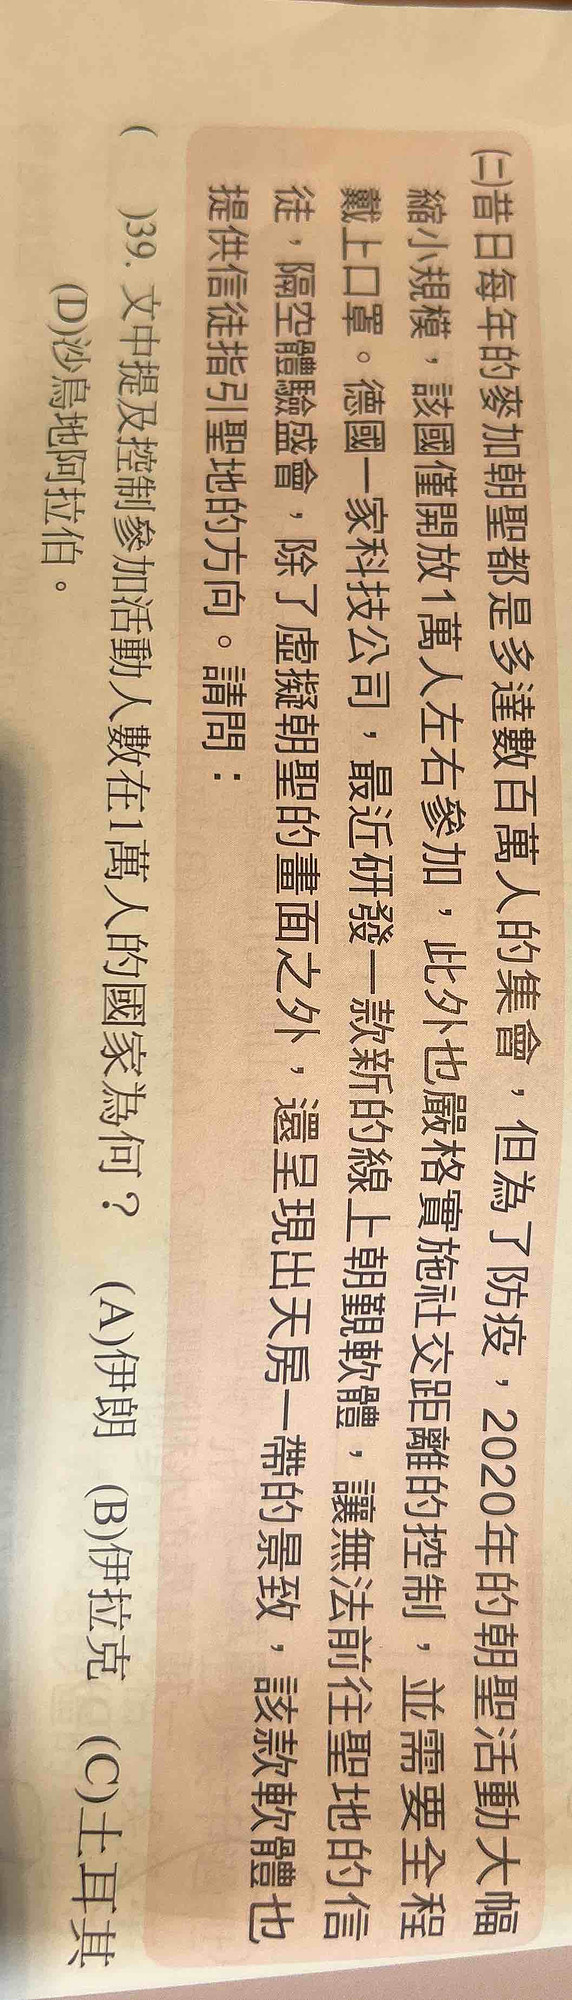 (二)昔日每年的麥加朝聖都是多達數百萬人的集會，但為了防疫，2020年的朝聖活動大幅
縮小規模，該國僅開放1萬人左右參加，此外也嚴格實施社交距離的控制，並需要全程
戴上口罩。德國一家科技公司，最近研發一款新的線上朝覲軟體，讓無法前往聖地的信
徒，隔空體驗盛會，除了虛擬朝聖的畫面之外，還呈現出天房一帶的景致，該款軟體也
提供信徒指引聖地的方向。請問：
(　)39. 文中提及控制參加活動人數在1萬人的國家為何？　(A)伊朗　(B)伊拉克　(C)土耳其
(D)沙烏地阿拉伯。